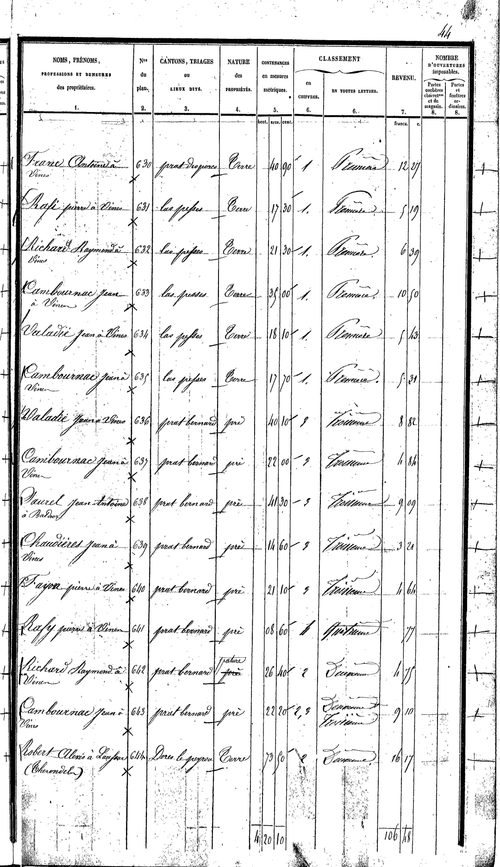 44
NOMS, PRÉNOMS, PROFESSIONS ET DEMEURES des propriétaires. 1.
Nos du plan. 2.
CANTONS, TRIAGES ou LIEUX DITS. 3.
NATURE des PROPRIÉTÉS. 4.
CONTENANCES en mesures métriques. 5.
CLASSEMENT
en CHIFFRES. 6.
EN TOUTES LETTRES. 6.
REVENU. 7.
NOMBRE D'OUVERTURES imposables.
Portes cochères charretes et de magasin. 8.
Portes et fenêtres ordinaires. 8.
hect. ares. cent. francs. c.
Antoine à Vines 630 Terre 40 90 1 Première 12 27
Rafi pierre à Vines 631 las pesses Terre 17 30 1. Première 5 19
Richard Raymond à Vines 632 las pesses Terre 21 30 1. Première 6 39
Cambournac Jean à Vines 633 las pesses Terre 35 00 1. Première. 10 50
Valadié Jean à Vines 634 las pesses Terre 18 10 1. Première 5 43
Cambournac Jean à Vines 635 las pesses Terre 17 70 1. Première. 5 31
Valadié Jean à Vines 636 prat bernard pré 40 10 3 Troisieme 8 82
Cambournac Jean à Vines 637 prat bernard pré 22 00 3 Troisieme 4 84
Jean Antoine 638 prat bernard pré 41 30 3 Troisieme 9 09
Chaudières Jean à Vines 639 prat bernard pré 14 60 3 Troisieme 3 21
Fayon pierre à Vines 640 prat bernard pré 21 10 3 Troisieme 4 64
Rafy pierre à Vines 641 prat bernard pré 08 60 4 Quatrieme 77
Richard Raymond à Vines 642 prat bernard pature pré 26 40 2 Deuxieme 4 75
Cambournac Jean à Vines 643 prat bernard pré 22 20 2,3 Deuxieme et Troisieme 9 10
Robert Alexis à 644 Terre 73 50 2 Deuxieme 16 17
4 20 10 106 18